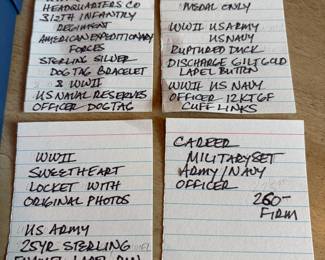 HEADQUARTERS CO
312TH INFANTRY
REGIMENT
AMERICAN EXPEDITIONARY
FORCES
STERLING SILVER
DOG TAG BRACELET
& WWII
US NAVAL RESERVES
OFFICER DOGTAG
MEDAL ONLY
WWII US ARMY
US NAVY
RUPTURED DUCK
DISCHARGE GILT GOLD
LAPEL BUTTON
WWII US NAVY
OFFICER 12KT GF
CUFF LINKS
WWII
SWEETHEART
LOCKET WITH
ORIGINAL PHOTOS
US ARMY
25YR STERLING
CAREER
MILITARY SET
ARMY/NAVY
OFFICER
260-
FIRM